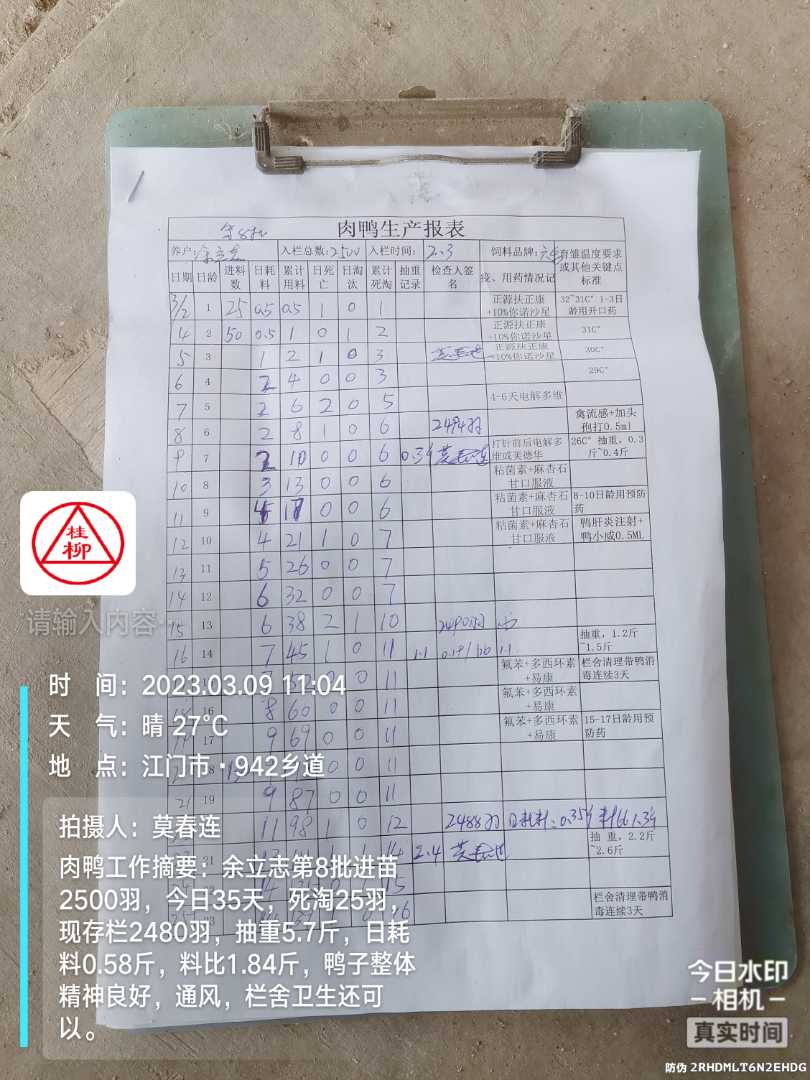 第8批
肉鸭生产报表
养户: 入栏总数:2500 入栏时间: 2.3 饲料品牌: 育雏温度要求或其他关键点标准
日期 日龄 进料数 日耗料 累计用料 日死亡 日淘汰 累计死淘 抽重记录 检查人签名 疫、用药情况记
3/2 1 25 0.5 0.5 1 0 1 正源扶正康+10%你诺沙星 32~31C° 1-3日龄用开口药
4 2 50 0.5 1 0 1 2 正源扶正康+10%你诺沙星 31C°
5 3 1 2 1 0 3 正源扶正康+10%你诺沙星 30C°
6 4 2 4 0 0 3 29C°
7 5 2 6 2 0 5 4-6天电解多维
8 6 2 8 1 0 6 2494羽 禽流感+加头孢打0.5ml
9 7 2 10 0 0 6 打针前后电解多维或芙德华 26C° 抽重，0.3斤~0.4斤
10 8 3 13 0 0 6 粘菌素+麻杏石甘口服液
11 9 17 0 0 6 粘菌素+麻杏石甘口服液 8-10日龄用预防药
12 10 4 21 1 0 7 粘菌素+麻杏石甘口服液 鸭肝炎注射+鸭小威0.5ML
13 11 5 26 0 0 7
14 12 6 32 0 0 7
15 13 6 38 2 1 10 2490羽
16 14 7 45 1 0 11 1.1 抽重，1.2斤~1.5斤
0 0 11 氟苯+多西环素+易康 栏舍清理带鸭消毒连续3天
16 8 60 0 0 11 氟苯+多西环素+易康
17 9 69 0 0 11 氟苯+多西环素+易康 15-17日龄用预防药
0 0 11
21 19 9 87 0 0 11
11 98 1 0 12 2488羽 日耗料:0.35斤
21 14 2.4 抽重，2.2斤~2.6斤
15
栏舍清理带鸭消毒连续3天
桂柳
请输入内容
时 间：2023.03.09 11:04
天 气：晴 27℃
地 点：江门市·942乡道
拍摄人：莫春连
肉鸭工作摘要：余立志第8批进苗
2500羽，今日35天，死淘25羽，
现存栏2480羽，抽重5.7斤，日耗
料0.58斤，料比1.84斤，鸭子整体
精神良好，通风，栏舍卫生还可
以。
今日水印
相机
真实时间
防伪 2RHDMLT6N2EHDG